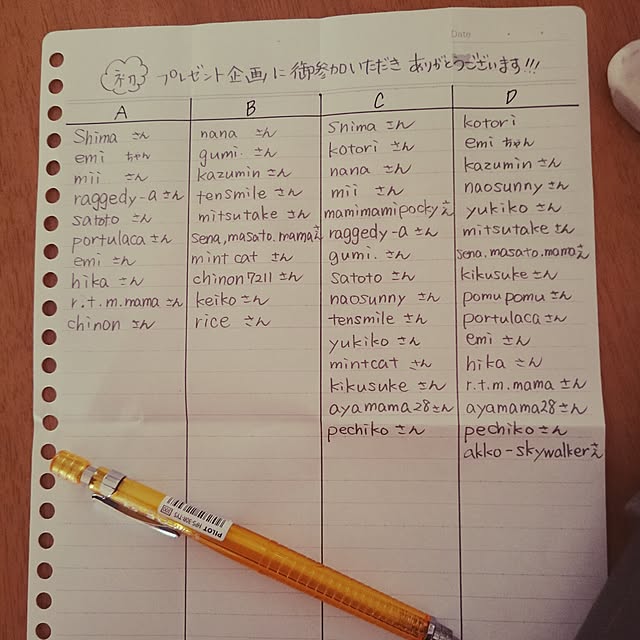 Date
初 プレゼント企画に御参加いただき ありがとうございます!!!
A B C D
Shima さん
emi ちゃん
mii さん
raggedy-a さん
satoto さん
portulaca さん
emi さん
hika さん
r.t.m.mama さん
chinon さん
nana さん
gumi. さん
kazumin さん
tensmile さん
mitsutake さん
sena.masato.mamaさん
mint cat さん
chinon7211 さん
keiko さん
rice さん
Shima さん
kotori さん
nana さん
mii さん
mamimamipocky さん
raggedy-a さん
gumi. さん
satoto さん
naosunny さん
tensmile さん
yukiko さん
mintcat さん
kikusuke さん
ayamama28さん
pechiko さん
kotori
emi ちゃん
kazumin さん
naosunny さん
yukiko さん
mitsutake さん
sena.masato.mamaさん
kikusuke さん
pomupomu さん
portulaca さん
emi さん
hika さん
r.t.m.mama さん
ayamama28さん
pechiko さん
akko-skywalker さん
PILOT HPS-30R-TY5